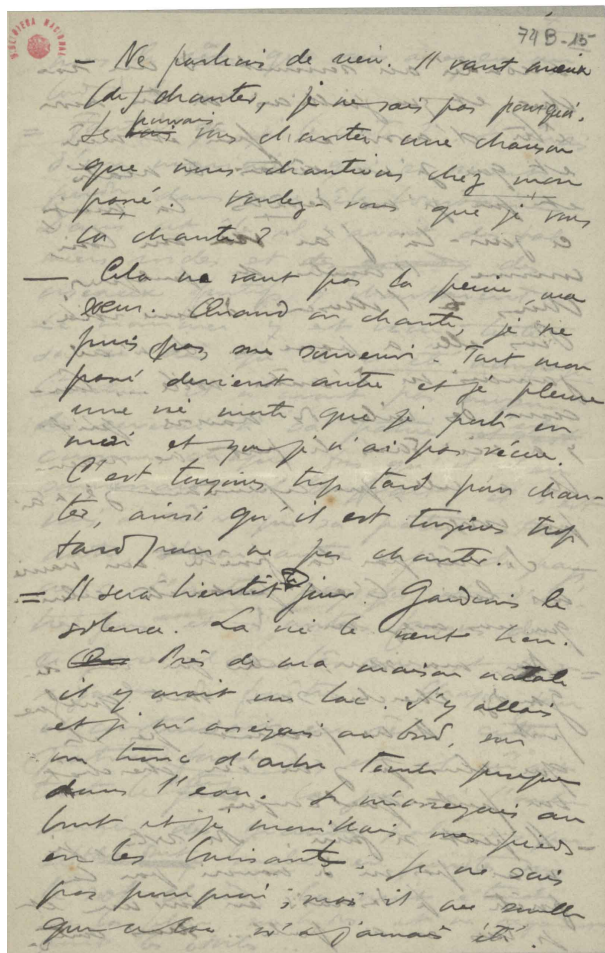 BIBLIOTECA NACIONAL
74B-15
— Ne parlons de rien. Il vaut mieux
(de) chanter, je ne sais pas pourquoi.
Je pouvais vous chanter une chanson
que nous chantions chez mon
passé. Voulez-vous que je vous
la chante?
— Cela ne vaut pas la peine, ma
sœur. Quand on chante, je ne
puis pas me souvenir. Tout mon
passé devient autre et je pleure
une vie morte que je porte en
moi et que je n'ai pas vécu.
C'est toujours trop tard pour chan-
ter, ainsi qu'il est toujours trop
tard pour ne pas chanter.
= Il sera bientôt jour. Gardons le
silence. La vie le veut bien.
Près de ma maison natale
il y avait un lac. J'y allais
et je m'asseyais au bord, sur
un tronc d'arbre tombé presque
dans l'eau. Je m'asseyais au
bout et je mouillais mes pieds
en les baissant. Je ne sais
pas pourquoi, mais il me semble
que ce lac n'a jamais été.